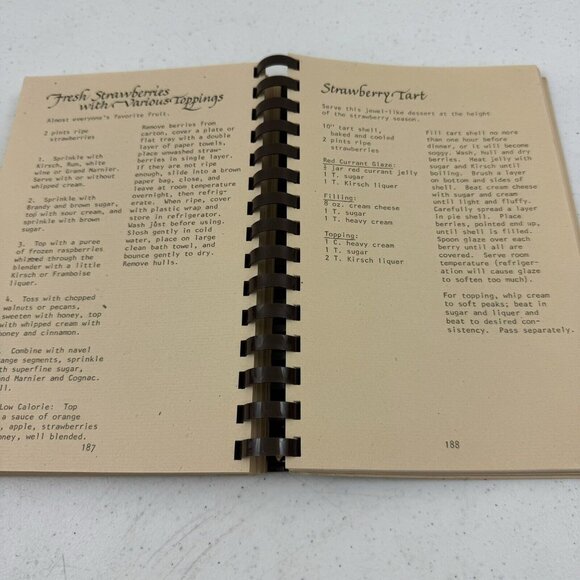 Fresh Strawberries
with Various Toppings
Almost everyone's favorite fruit.
2 pints ripe
strawberries
1. Sprinkle with
Kirsch, Rum, white
wine or Grand Marnier.
Serve with or without
whipped cream.
2. Sprinkle with
Brandy and brown sugar,
top with sour cream, and
sprinkle with brown
sugar.
3. Top with a puree
of frozen raspberries
whipped through the
blender with a little
Kirsch or Framboise
liquer.
4. Toss with chopped
walnuts or pecans,
sweeten with honey, top
with whipped cream with
honey and cinnamon.
Combine with navel
range segments, sprinkle
ith superfine sugar,
nd Marnier and Cognac.
ll.
Low Calorie: Top
a sauce of orange
, apple, strawberries
oney, well blended.
Remove berries from
carton, cover a plate or
flat tray with a double
layer of paper towels,
place unwashed straw-
berries in single layer.
If they are not ripe
enough, slide into a brown
paper bag, close, and
leave at room temperature
overnight, then refrig-
erate. When ripe, cover
with plastic wrap and
store in refrigerator.
Wash just before using.
Slosh gently in cold
water, place on large
clean bath towel, and
bounce gently to dry.
Remove hulls.
187
Strawberry Tart
Serve this jewel-like dessert at the height
of the strawberry season.
10" tart shell,
baked and cooled
2 pints ripe
strawberries
Red Currant Glaze:
1 jar red currant jelly
1 T. sugar
1 T. Kirsch liquer
Filling:
8 oz. cream cheese
1 T. sugar
1 T. heavy cream
Topping:
1 C. heavy cream
1 T. sugar
2 T. Kirsch liquer
Fill tart shell no more
than one hour before
dinner, or it will become
soggy. Wash, hull and dry
berries. Heat jelly with
sugar and Kirsch until
boiling. Brush a layer
on bottom and sides of
shell. Beat cream cheese
with sugar and cream
until light and fluffy.
Carefully spread a layer
in pie shell. Place
berries, pointed end up,
until shell is filled.
Spoon glaze over each
berry until all are
covered. Serve room
temperature (refriger-
ation will cause glaze
to soften too much).
For topping, whip cream
to soft peaks; beat in
sugar and liquer and
beat to desired con-
sistency. Pass separately.
188